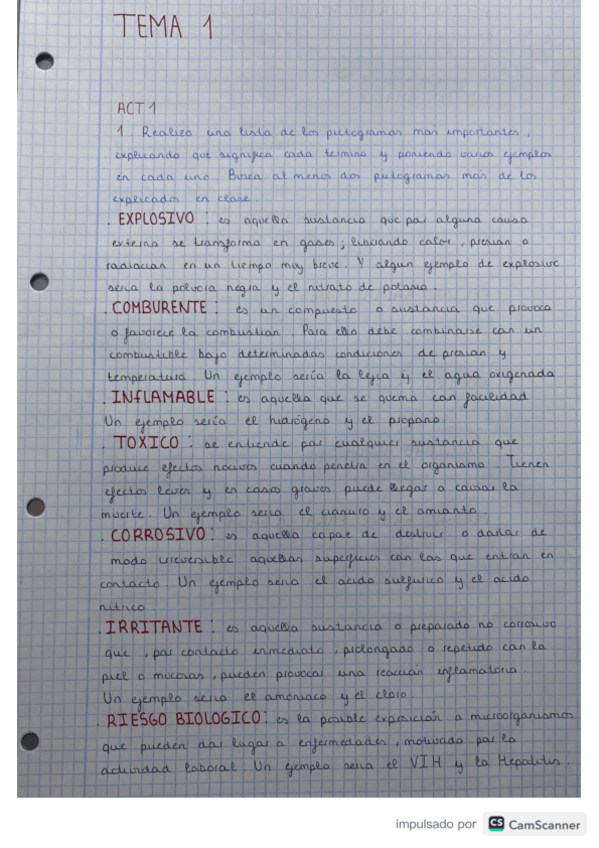 TEMA 1
ACT 1
1. Realiza una lista de los pictogramas mas importantes,
explicando que significa cada termino y poniendo varios ejemplos
en cada uno. Busca al menos dos pictogramas mas de los
explicados en clase.
. EXPLOSIVO : es aquella sustancia que por alguna causa
externa se transforma en gases ; liberando calor , presion o
radiacion en un tiempo muy breve. Y algun ejemplo de explosivo
seria la polvora negra y el nitrato de potasio.
. COMBURENTE : es un compuesto o sustancia que provoca
o favorece la combustion. Para ello debe combinarse con un
combustible bajo determinadas condiciones de presion y
temperatura. Un ejemplo seria la lejia y el agua oxigenada
. INFLAMABLE : es aquella que se quema con facilidad
Un ejemplo seria el hidrógeno y el propano.
. TOXICO : se entiende por cualquier sustancia que
produce efectos nocivos cuando penetra en el organismo. Tienen
efectos leves y en casos graves puede llegar a causar la
muerte. Un ejemplo seria el cianuro y el amianto.
. CORROSIVO : es aquella capaz de destruir o dañar de
modo irreversible aquellas superficies con las que entran en
contacto. Un ejemplo seria el acido sulfurico y el acido
nitrico.
. IRRITANTE : es aquella sustancia o preparado no corrosivo
que , por contacto inmediato , prolongado o repetido con la
piel o mucosas , pueden provocar una reacción inflamatoria.
Un ejemplo seria el amoniaco y el cloro.
. RIESGO BIOLOGICO : es la posible exposición a microorganismos
que pueden dar lugar a enfermedades , motivado por la
actividad laboral. Un ejemplo seria el VIH y la Hepatitis.
impulsado por CS CamScanner